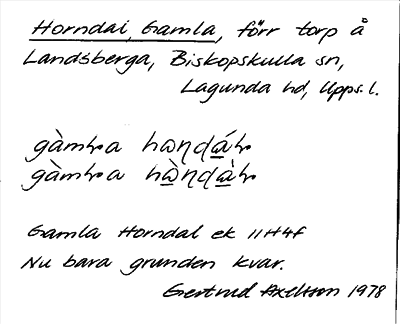 Horndal, Gamla, förr torp å
Landsberga, Biskopskulla sn,
Lagunda hd, Upps. l.
Gamla Horndal ek 11H4f
Nu bara grunden kvar.
Gertrud Axelsson 1978